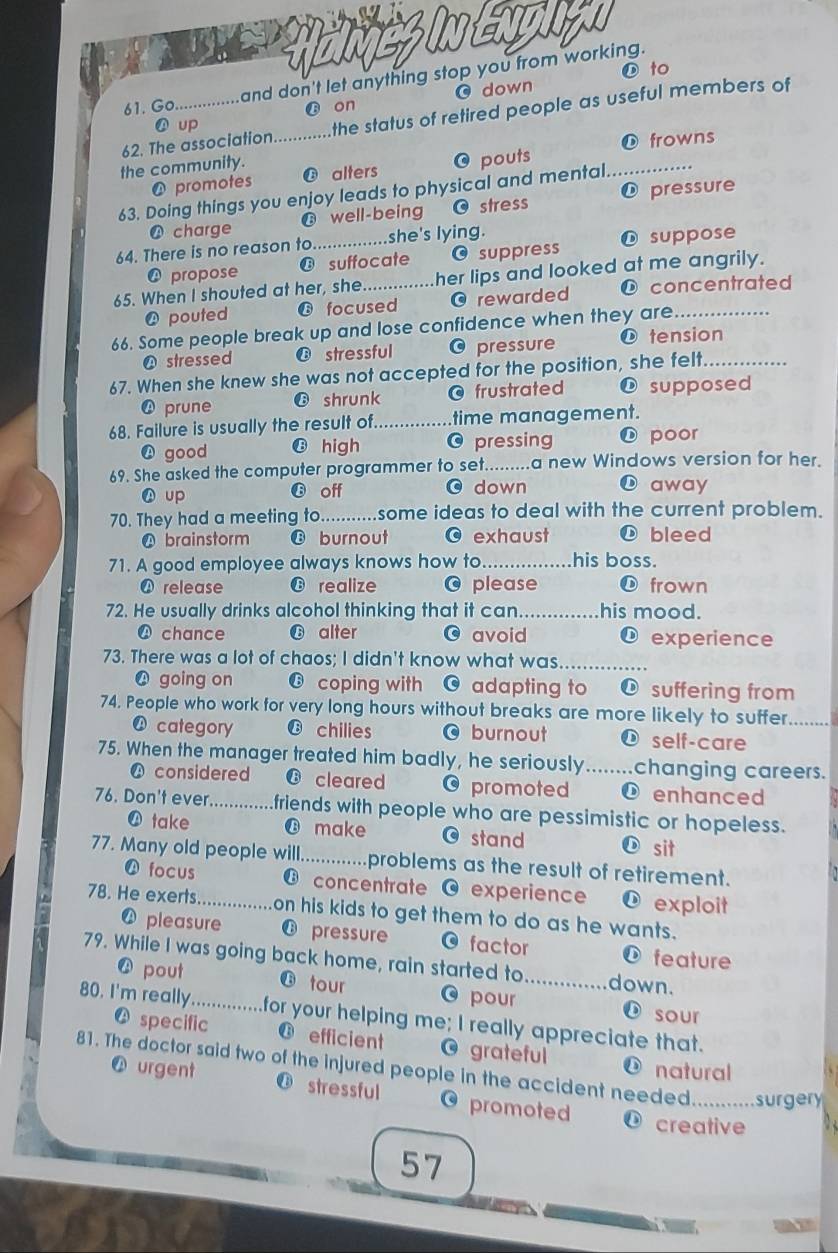 Holmes In English
61. Go.............and don't let anything stop you from working.
A up B on C down D to
62. The association............the status of retired people as useful members of
the community.
A promotes B alters C pouts D frowns
63. Doing things you enjoy leads to physical and mental...............
A charge B well-being C stress D pressure
64. There is no reason to...............she's lying.
A propose B suffocate C suppress D suppose
65. When I shouted at her, she..............her lips and looked at me angrily.
A pouted B focused C rewarded D concentrated
66. Some people break up and lose confidence when they are................
A stressed B stressful C pressure D tension
67. When she knew she was not accepted for the position, she felt..............
A prune B shrunk C frustrated D supposed
68. Failure is usually the result of...............time management.
A good B high C pressing D poor
69. She asked the computer programmer to set.........a new Windows version for her.
A up B off C down D away
70. They had a meeting to...........some ideas to deal with the current problem.
A brainstorm B burnout C exhaust D bleed
71. A good employee always knows how to................his boss.
A release B realize C please D frown
72. He usually drinks alcohol thinking that it can..............his mood.
A chance B alter C avoid D experience
73. There was a lot of chaos; I didn't know what was................
A going on B coping with C adapting to D suffering from
74. People who work for very long hours without breaks are more likely to suffer........
A category B chilies C burnout D self-care
75. When the manager treated him badly, he seriously........changing careers.
A considered B cleared C promoted D enhanced
76. Don't ever.............friends with people who are pessimistic or hopeless.
A take B make C stand D sit
77. Many old people will.............problems as the result of retirement.
A focus B concentrate C experience D exploit
78. He exerts..............on his kids to get them to do as he wants.
A pleasure B pressure C factor D feature
79. While I was going back home, rain started to...............down.
A pout B tour C pour D sour
80. I'm really..............for your helping me; I really appreciate that.
A specific B efficient C grateful D natural
81. The doctor said two of the injured people in the accident needed...........surgery
A urgent B stressful C promoted D creative
57